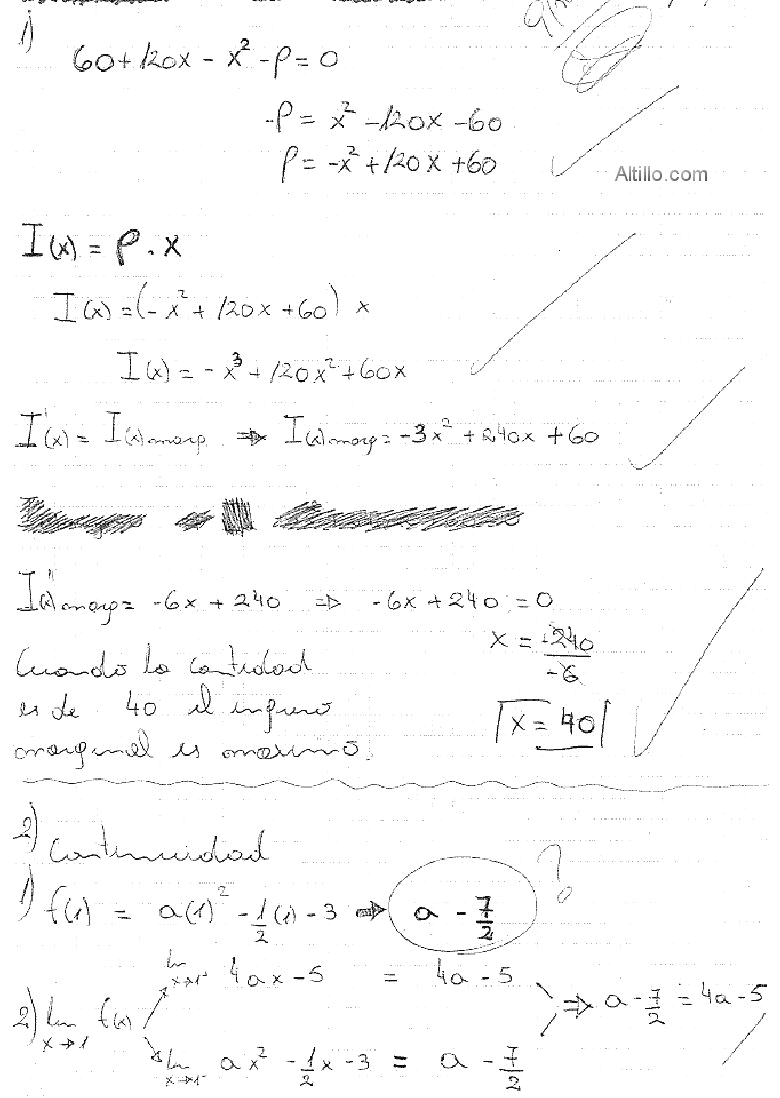 1)
60+120x - x² - p = 0
-p = x² - 120x - 60
p = -x² + 120x + 60
Altillo.com
I(x) = p . x
I(x) = (-x² + 120x + 60) x
I(x) = -x³ + 120x² + 60x
I'(x) = I(x) marg. ⇒ I(x) marg = -3x² + 240x + 60
I'(x) marg = -6x + 240 ⇒ -6x + 240 = 0
x = -240/-6
Cuando la cantidad
es de 40 el ingreso x = 40
marginal es maximo.
2) Continuidad
1) f(1) = a(1)² - 1/2(1) - 3 ⇒ a - 7/2 ?
lim x→1⁺ 4ax - 5 = 4a - 5
2) lim x→1 f(x) ⇒ a - 7/2 = 4a - 5
lim x→1⁻ ax² - 1/2x - 3 = a - 7/2